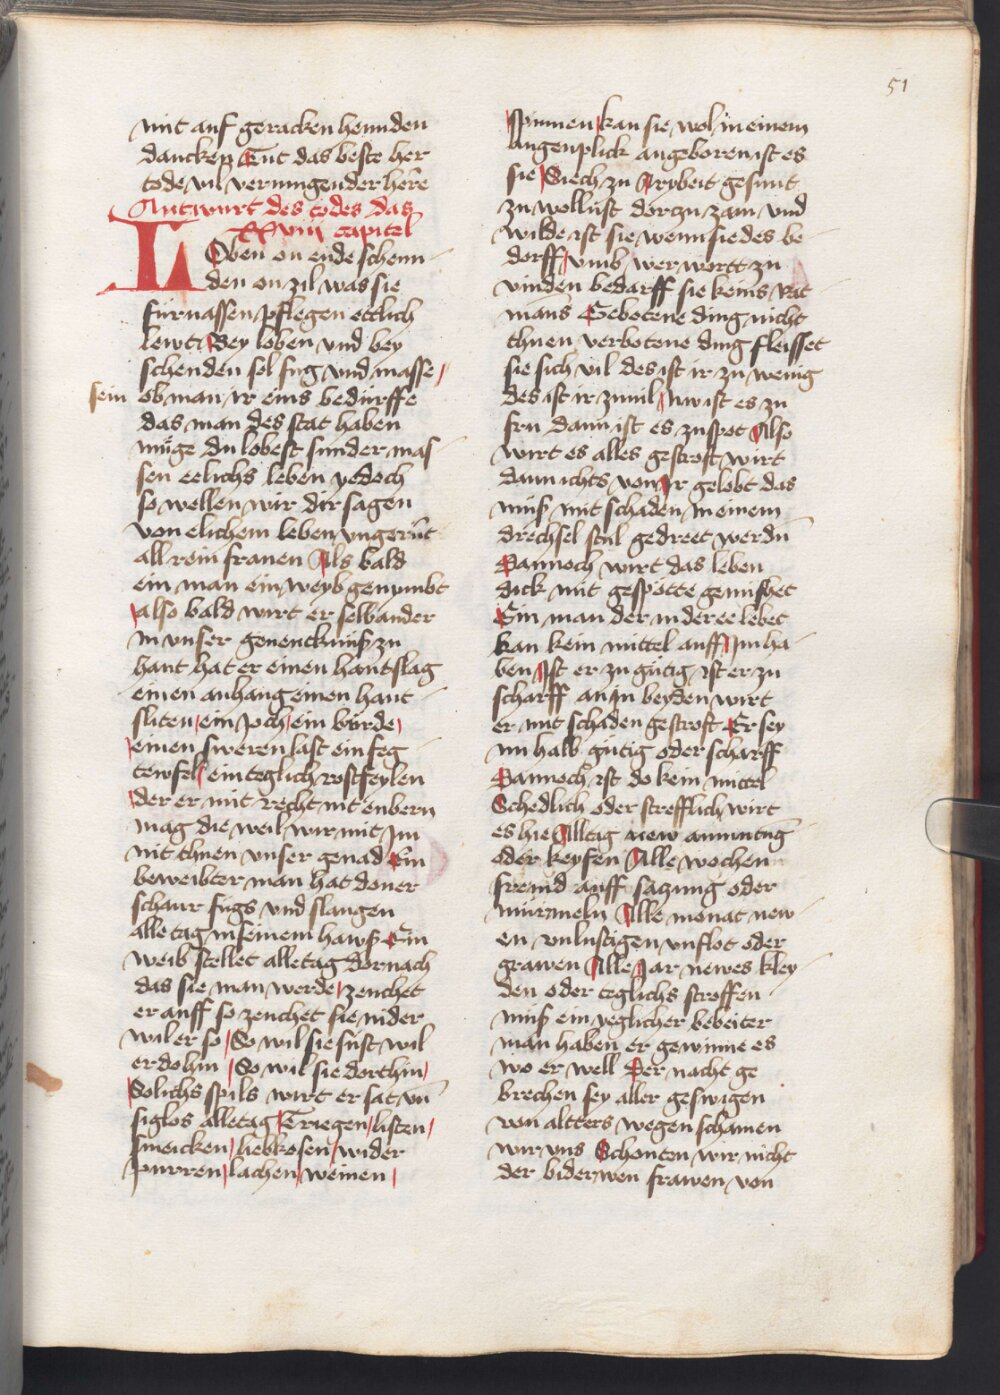 51
mit auf geracken hennden
dancken Tut das beste her
tode vil vermugender here
Antwurt des todes das
XXviij capitel
LOben on ende schenn
den on zil was sie
fürnassen pflegen ettlich
lewt Bey loben vnd bey
schenden sol fug vnd masse
sein ob man ir eins bedürffe
das man des stat haben
müge du lobest sunder mas
sen eelichs leben yedoch
so wellen wir dir sagen
von elichem leben vngerüt
all rein frauen Als bald
ein man ein weyb genymbt
also bald wirt er selbander
in vnser genencknuß zu
hant hat er einen hantslag
einen anhang einen hant
sliten ein yoch ein bürde
einen sweren last ein feg
tewfel ein teglich rostfeylen
der er mit recht nit enbern
mag die weil wir mit im
nit thuen vnser genad Ein
beweibter man hat doner
schaur fugs vnd slangen
alle tag in seinem hawß Ein
weib stellet alle tag dornach
das sie man werde zeuchet
er auff so zeuchet sie nider
wil er so So wil sie sust wil
er dohin So wil sie dorthin
Solichs spils wirt er sat vn̄
siglos alletag Triegen listen
smeicken liebkosen wider
purren lachen weinen
spinnen kan sie wol in einem
augenplick angeboren ist es
sie Siech zu Arybeit gesunt
zu wollust dorczu zam vnd
wilde ist sie wenn sie des be
dorff vmb wer wortt zu
vinden bedarff sie keins Rat
mans Gebotene ding nicht
thuen verbotene ding fleisset
sie sich vil des ist ir zu wenig
des ist ir zuuil Nw ist es zu
fru dann ist es zu spot Also
wirt es alles gestroft wirt
dann ichts von Ir gelobt das
muß mit schaden in einem
drechsel stul gedreet werdn̄
Dannoch wirt das leben
dick mit gespötte gemischet
Ein man der in der ee lebet
kan kein mittel auff Im ha
ben Ist er zu gütig ist er zu
scharff an In beyden wirt
er mit schaden gestroft Er sey
nn halb gütig oder scharff
Dannoch ist do kein mittel
Schedlich oder strefflich wirt
es hie Alltag new anmutūg
oder keyfen Alle wochen
fremd auff saczung oder
mürmeln Alle monat new
en vnlustigen vnflot oder
grawen Alle Jar newes kley
den oder teglichs stroffen
muß ein yeglicher bebeiter
man haben er gewinne es
wo er well Der nacht ge
brechen sey aller geswigen
von altters wegen schamen
wir vns Schonten wir nicht
der biderwen frawen von